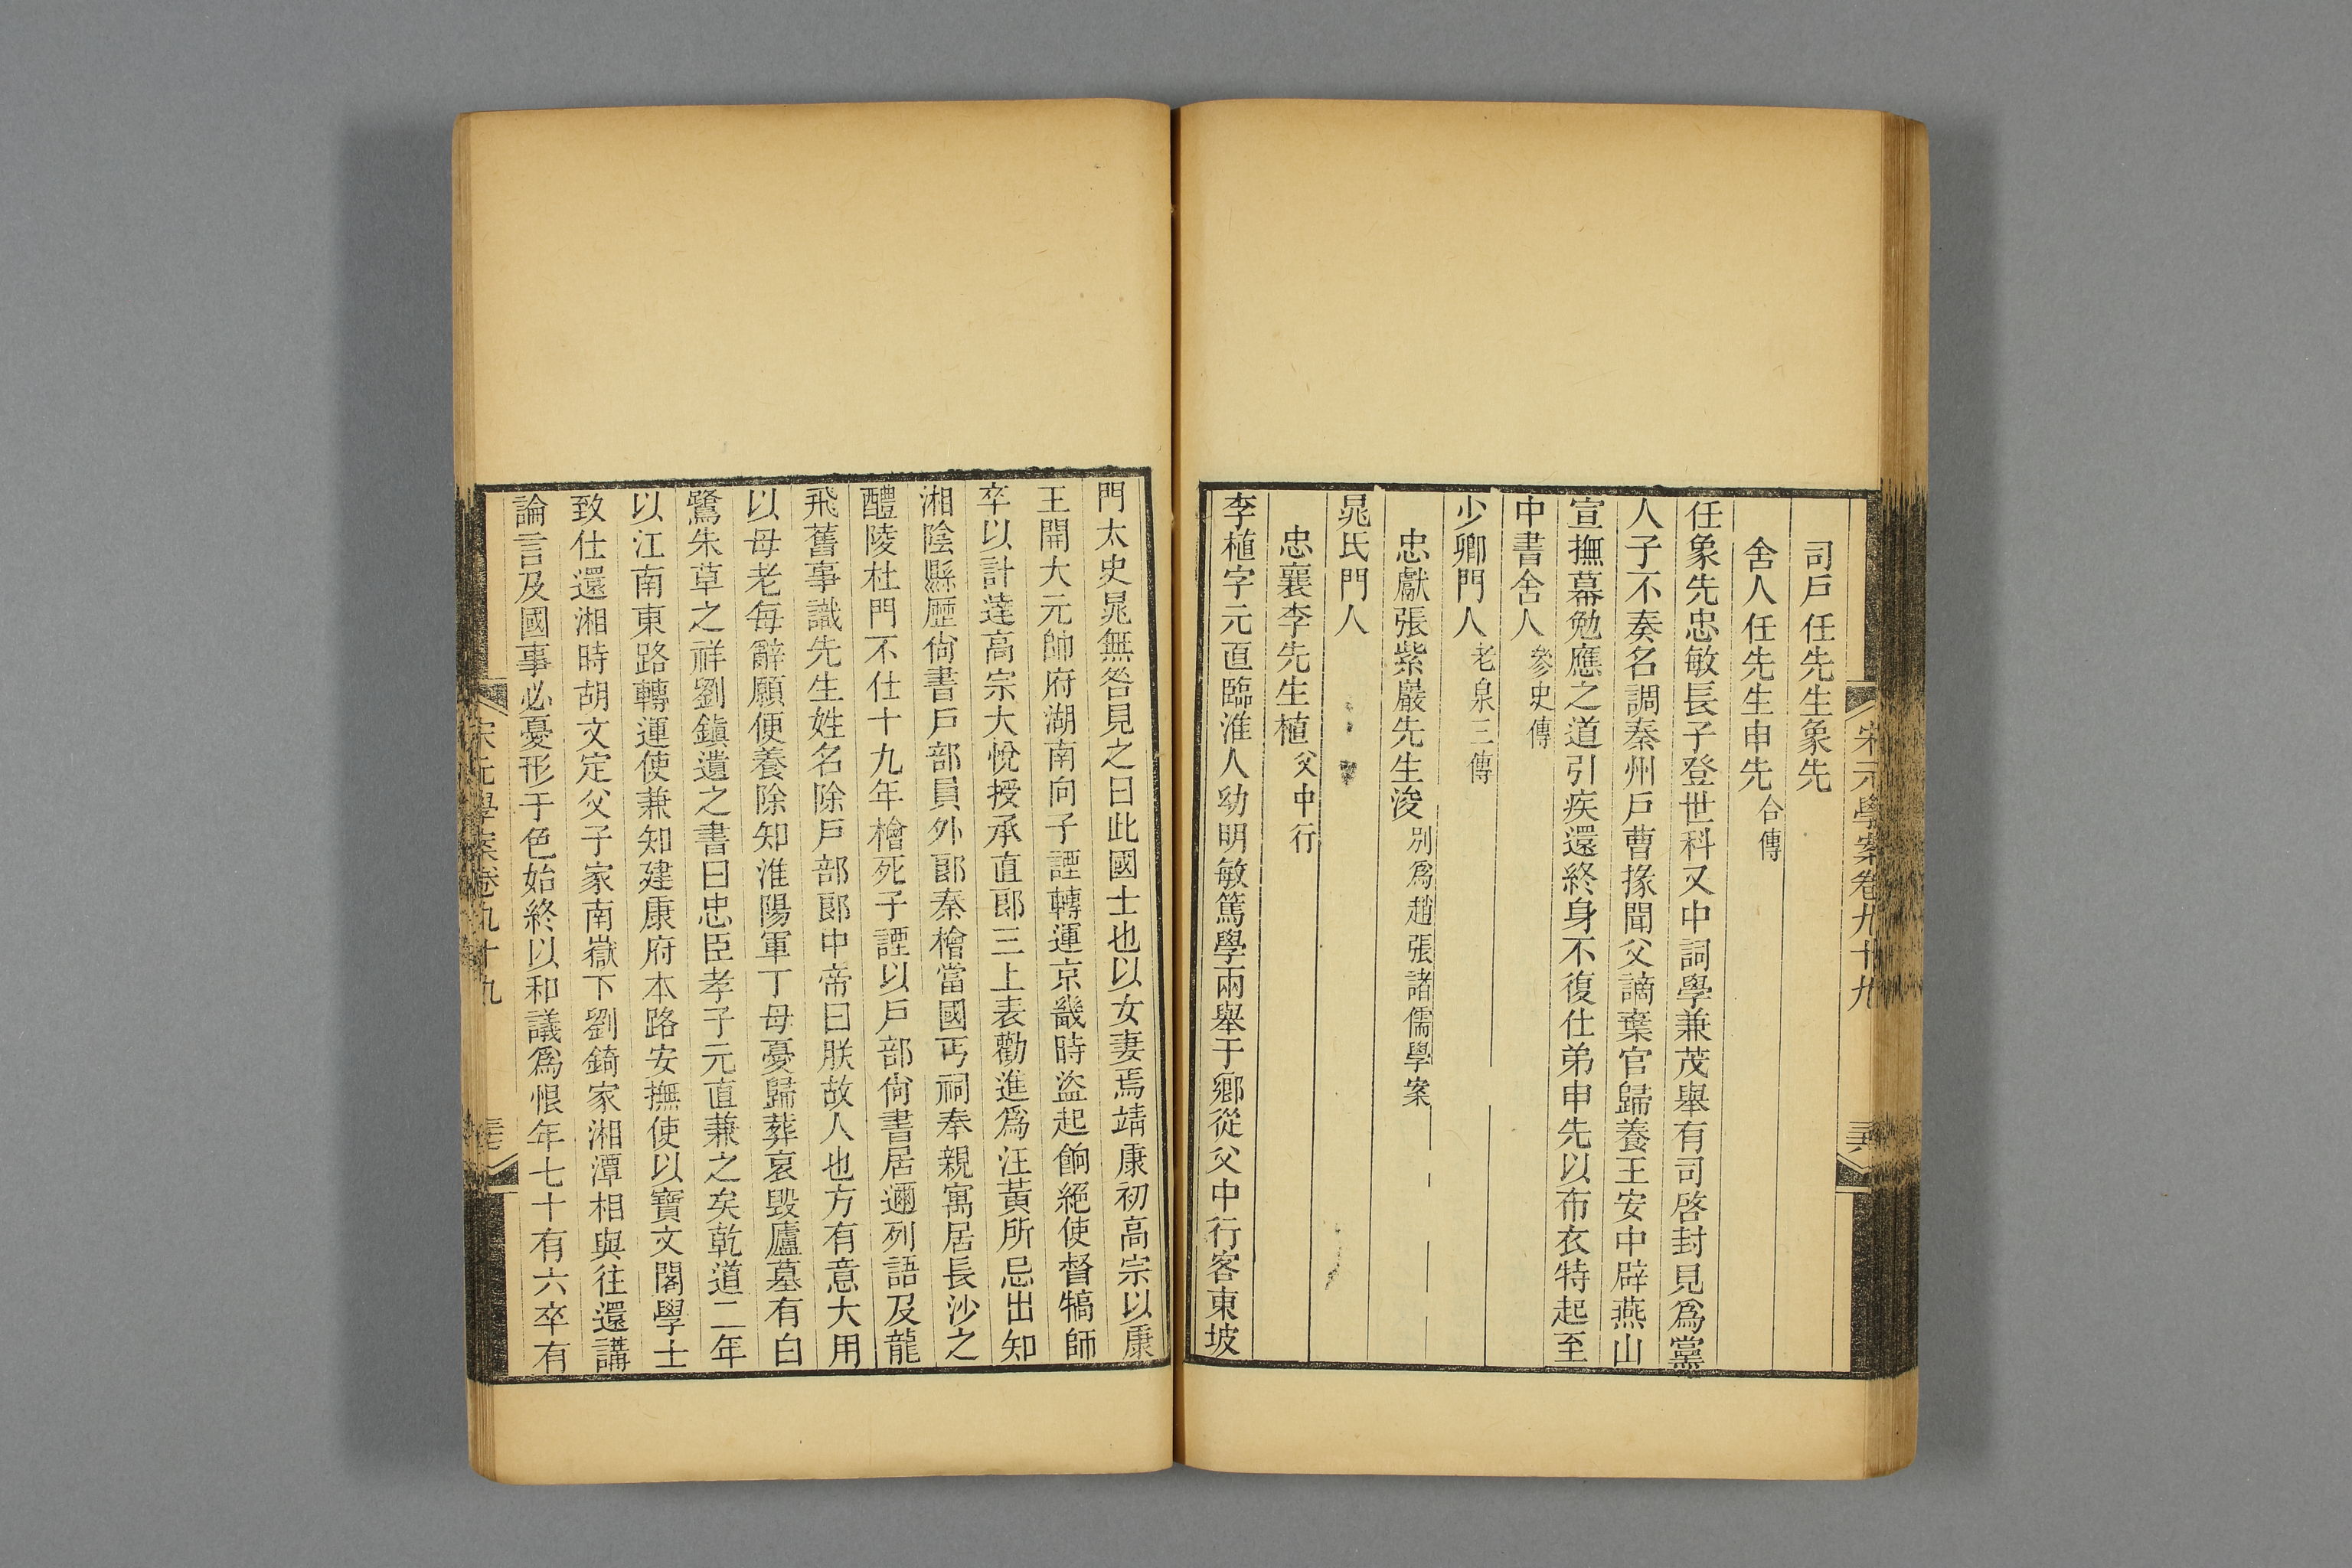 宋元學案卷九十九
司戶任先生象先
舍人任先生申先合傳
任象先忠敏長子登世科又中詞學兼茂舉有司啓封見爲黨
人子不奏名調秦州戶曹掾聞父謫棄官歸養王安中辟燕山
宣撫幕勉應之道引疾還終身不復仕弟申先以布衣特起至
中書舍人參史傳
少卿門人老泉三傳
忠獻張紫巖先生浚別爲趙張諸儒學案
晁氏門人
忠襄李先生植父中行
李植字元直臨淮人幼明敏篤學兩舉于鄉從父中行客東坡
門太史晁無咎見之曰此國士也以女妻焉靖康初高宗以康
王開大元帥府湖南向子諲轉運京畿時盜起餉絕使督犒師
卒以計達高宗大悅授承直郎三上表勸進爲汪黃所忌出知
湘陰縣歷尙書戶部員外郎秦檜當國丐祠奉親寓居長沙之
醴陵杜門不仕十九年檜死子諲以戶部尙書居邇列語及龍
飛舊事識先生姓名除戶部郎中帝曰朕故人也方有意大用
以母老每辭願便養除知淮陽軍丁母憂歸葬哀毀廬墓有白
鷺朱草之祥劉錡遺之書曰忠臣孝子元直兼之矣乾道二年
以江南東路轉運使兼知建康府本路安撫使以寶文閣學士
致仕還湘時胡文定父子家南嶽下劉錡家湘潭相與往還講
論言及國事必憂形于色始終以和議爲恨年七十有六卒有
宋元學案卷九十九